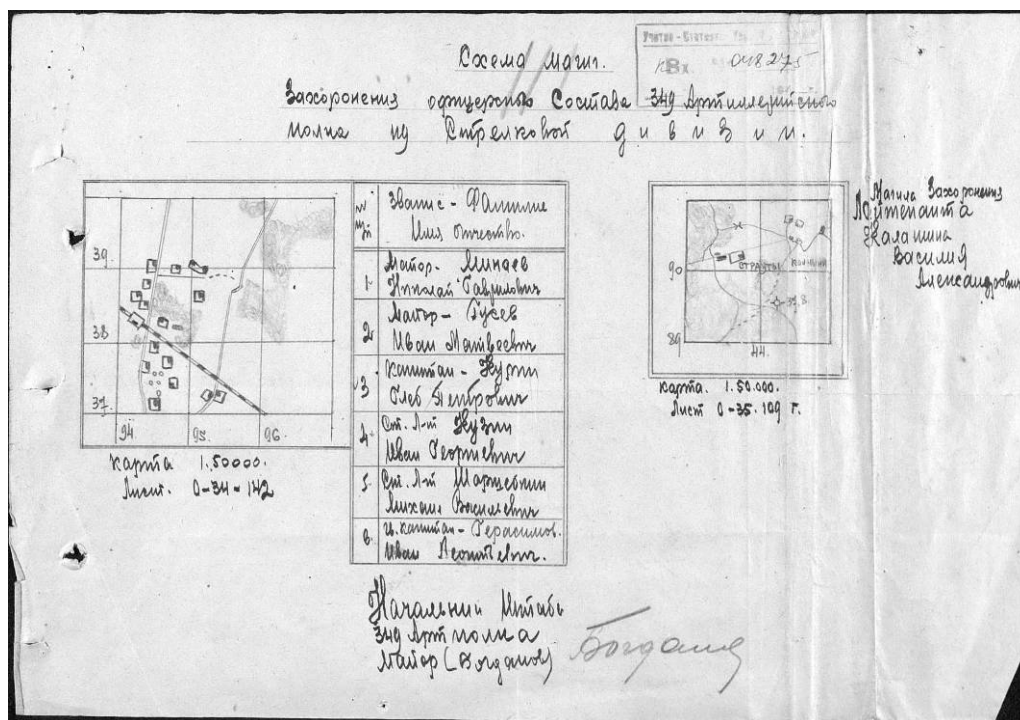 Схема магил.
Учетно-Статист.
Вх. 048275
Захоронения офицерского Состава 349 Артиллерийского
полка Стрелковой дивизии.
39
38
37
94 95 96
карта 1.50000.
Лист. 0-34-142
№№ Звание - Фамилие
Имя отчество.
1 Майор - Минаев
Николай Гаврилович
2 Майор - Гусев
Иван Матвеевич
3 Капитан - Кузин
Глеб Петрович
4 Ст. Л-т Кузин
Иван Георгиевич
5. Ст. Л-т
Михаил Васильевич
6. капитан - Герасимов.
Иван Леонтьевич.
90
89
44.
карта. 1.50.000.
Лист 0-35-109 г.
Магила Захоронения
Лейтенанта
Калашина
Василия
Александрович
Начальник Штаба
349 Артполка
Майор (Богданов)